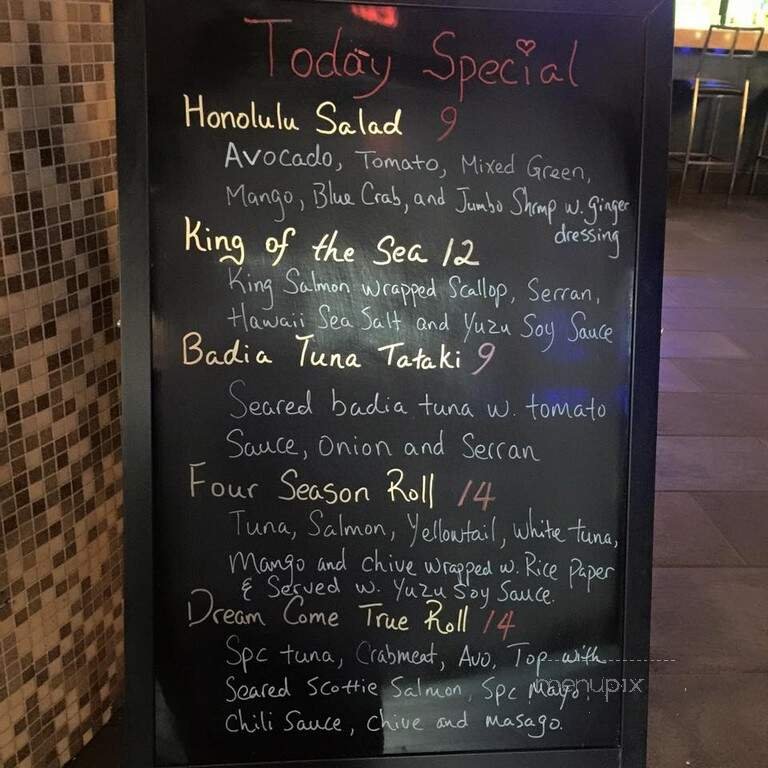 Today Special
Honolulu Salad 9
Avocado, Tomato, Mixed Green,
Mango, Blue Crab, and Jumbo Shrmp w. ginger
dressing
King of the Sea 12
King Salmon wrapped Scallop, Serran,
Hawaii Sea Salt and Yuzu Soy Sauce
Badia Tuna Tataki 9
Seared badia tuna w. tomato
Sauce, onion and Serran
Four Season Roll 14
Tuna, Salmon, Yellowtail, white tuna,
Mango and chive wrapped w. Rice paper
& Served w. Yuzu Soy Sauce.
Dream Come True Roll 14
Spc tuna, Crabmeat, Avo, Top with
Seared Scottie Salmon, Spc Mayo,
Chili Sauce, Chive and masago.
menupix